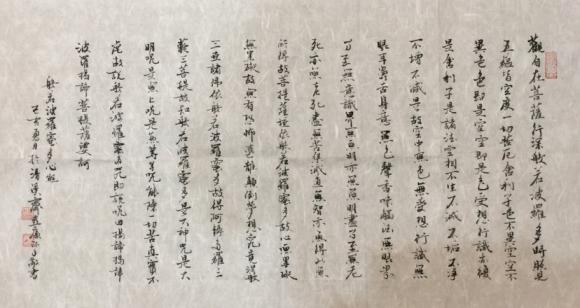 觀自在菩薩行深般若波羅多時照見
五蘊皆空度一切苦厄舍利子色不異空空不
異色色即是空空即是色受想行識亦復如
是舍利子是諸法空相不生不滅不垢不淨
不增不減是故空中無色無受想行識無
眼耳鼻舌身意無色聲香味觸法無眼界
乃至無意識界無無明亦無無明盡乃至無老
死亦無老死盡無苦集滅道無智亦無得以無
所得故菩提薩埵依般若波羅蜜多故心無罣礙
無罣礙故無有恐怖遠離顛倒夢想究竟涅槃
三世諸佛依般若波羅蜜多故得阿耨多羅三
藐三菩提故知般若波羅蜜多是大神咒是大
明咒是無上咒是無等等咒能除一切苦真實不
虛故說般若波羅蜜多咒即說咒曰揭諦揭諦
波羅揭諦菩提薩婆訶
般若波羅蜜多心經
己亥夏月於清齋敬書